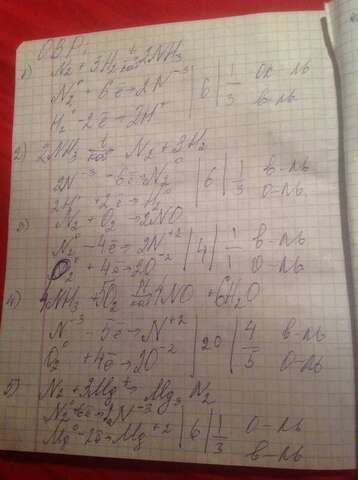 ОВР:
1) N₂ + 3H₂ ⇄ 2NH₃
N₂⁰ + 6ē → 2N⁻³ | 6 | 1 ок-ль
H₂⁰ - 2ē → 2H⁺ | 3 в-ль
2) 2NH₃ ⇄ N₂ + 3H₂
2N⁻³ - 6ē → N₂⁰ | 6 | 1 в-ль
2H⁺ + 2ē → H₂⁰ | 3 о-ль
3) N₂ + O₂ → 2NO
N₂⁰ - 4ē → 2N⁺² | 4 | 1 в-ль
O₂⁰ + 4ē → 2O⁻² | 1 о-ль
4) 4NH₃ + 5O₂ → 4NO + 6H₂O
N⁻³ - 5ē → N⁺² | 20 | 4 в-ль
O₂⁰ + 4ē → 2O⁻² | 5 о-ль
5) N₂ + 3Mg → Mg₃N₂
N₂⁰ + 6ē → 2N⁻³ | 6 | 1 о-ль
Mg⁰ - 2ē → Mg⁺² | 3 в-ль